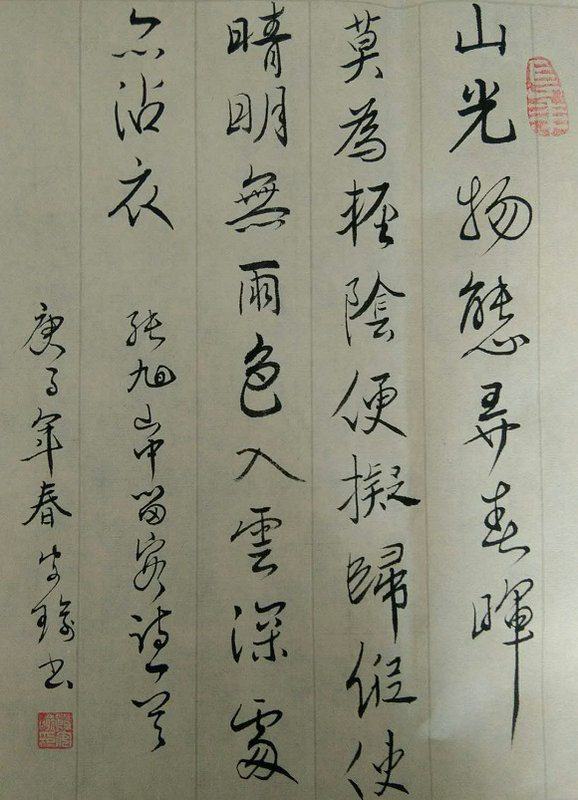 山光物態弄春暉
莫為輕陰便擬歸縱使
晴明無雨色入雲深處
亦沾衣 張旭山中留客詩一首
庚子年春 书